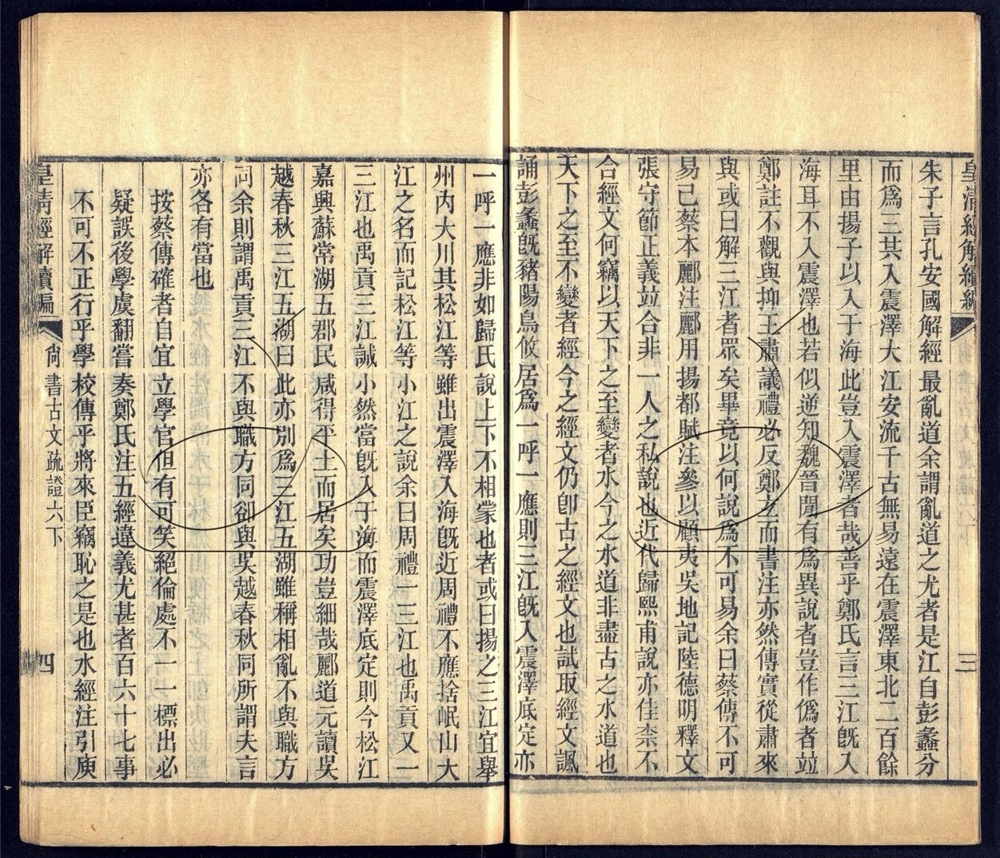 皇清經解續編
三
朱子言孔安國解經最亂道余謂亂道之尤者是江自彭蠡分
而爲三共入震澤大江安流千古無易遠在震澤東北二百餘
里由揚子以入于海此豈入震澤者哉善乎鄭氏言三江旣入
海耳不入震澤也若似逆知魏晉閒有爲異說者豈作僞者竝
鄭註不觀與抑王肅議禮必反鄭玄而書注亦然傳實從肅來
與或曰解三江者眾矣畢竟以何說爲不可易余曰蔡傳不可
易已蔡本酈注酈用揚都賦注參以顧夷吳地記陸德明釋文
張守節正義竝合非一人之私說也近代歸熙甫說亦佳柰不
合經文何竊以天下之至變者水今之水道非盡古之水道也
天下之至不變者經今之經文仍卽古之經文也試取經文諷
誦彭蠡旣豬陽鳥攸居爲一呼一應則三江旣入震澤底定亦
一呼一應非如歸氏說上下不相蒙也者或曰揚之三江宜舉
州內大川其松江等雖出震澤入海旣近周禮不應捨岷山大
江之名而記松江等小江之說余曰周禮一三江也禹貢又一
三江也禹貢三江誠小然當旣入于海而震澤底定則今松江
嘉興蘇常湖五郡民咸得平土而居矣功豈細哉酈道元讀吳
越春秋三江五湖曰此亦別爲三江五湖雖稱相亂不與職方
同余則謂禹貢三江不與職方同卻與吳越春秋同所謂夫言
亦各有當也
按蔡傳確者自宜立學官但有可笑絕倫處不一一標出必
疑誤後學虞翻嘗奏鄭氏注五經違義尤甚者百六十七事
不可不正行乎學校傳乎將來臣竊恥之是也水經注引庾
皇清經解續編
尙書古文疏證六下
四